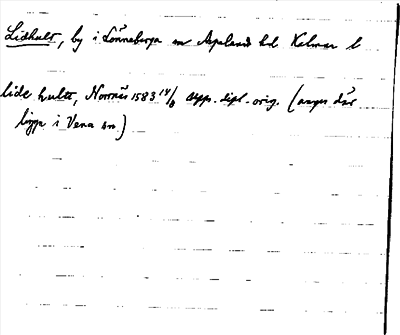 Lidhult, by i Lönneberga sn Aspelands hd Kalmar l
lide hultt, Norrnäs 1583 14/8 Upps. dipl. orig. (anges där
ligga i Vena sn.)